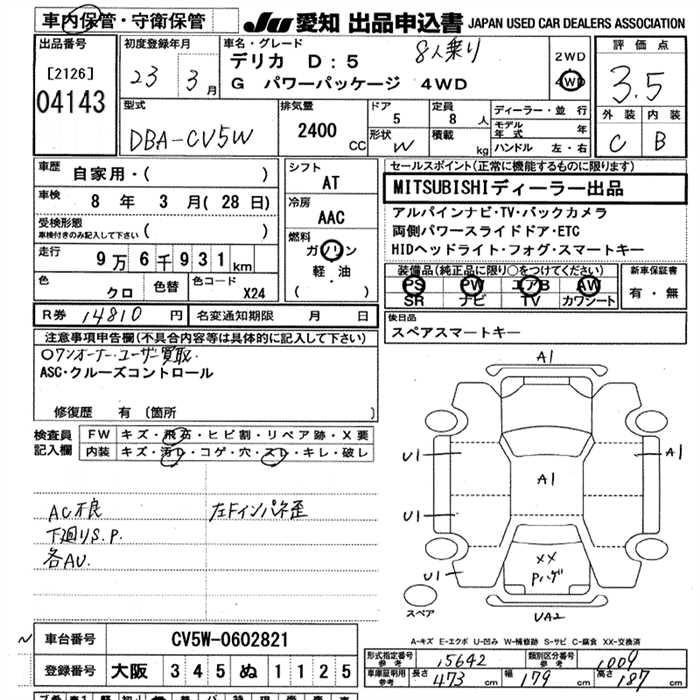 車内保管・守衛保管
JU 愛知 出品申込書 JAPAN USED CAR DEALERS ASSOCIATION
出品番号
[2126]
04143
初度登録年月
23年 3月
車名・グレード
8人乗り
デリカ D:5
G パワーパッケージ 4WD
2WD
4WD
評価点
3.5
外装 内装
C B
型式
DBA-CV5W
排気量
2400 CC
ドア
5
形状
W
定員
8 人
積載
kg
ディーラー・並行
モデル年式 年
ハンドル 左・右
車歴
自家用・( )
車検
8 年 3 月( 28 日)
受検形態
車検付きのみ記入して下さい
( )
走行
9万6千931km
色
クロ
色替
色コード
X24
シフト
AT
冷房
AAC
燃料
ガソリン
軽・油
( )
セールスポイント(正常に機能するものに限ります)
MITSUBISHIディーラー出品
アルパインナビ・TV・バックカメラ
両側パワースライドドア・ETC
HIDヘッドライト・フォグ・スマートキー
装備品(純正品に限り○をつけてください)
PS PW エアB AW
SR ナビ TV カワシート
新車保証書
有・無
R券 14810 円
名変通知期限 月 日
後日品
スペアスマートキー
注意事項申告欄(不具合内容等は具体的に記入して下さい)
○ワンオーナー・ユーザー買取.
ASC・クルーズコントロール
修復歴 有(箇所
検査員記入欄
FW キズ・飛石・ヒビ割・リペア跡・X要
内装 キズ・汚レ・コゲ・穴・スレ・キレ・破レ
AC不良
下廻りS.P.
各AU.
左Fインパネ歪
A1
U1
A1
A1
U1
XX
Pハゲ
U1
UA2
スペア
A-キズ E-エクボ U-凹み W-補修跡 S-サビ C-腐食 XX-交換済
車台番号 CV5W-0602821
登録番号 大阪 345 ぬ 1125
形式指定番号
参考
15642
類別区分番号
参考
1009
車庫証明用
参考
長さ 473 cm 幅 179 cm 高さ 187 cm